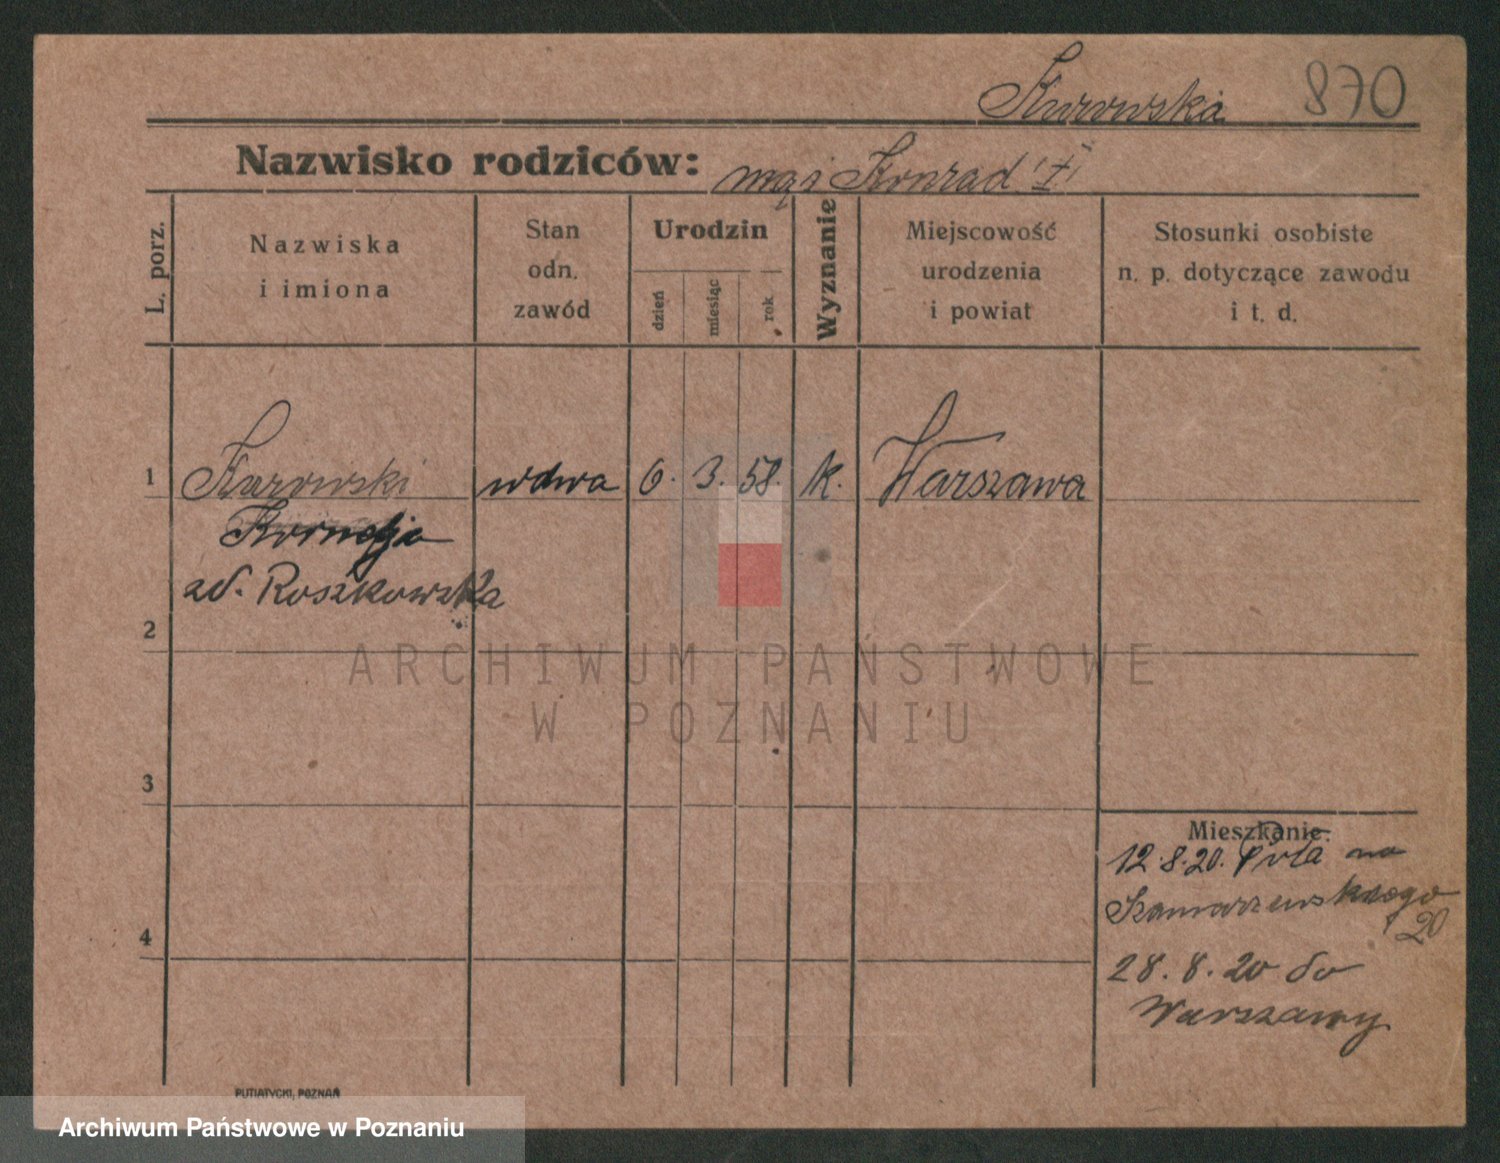 Kurowska 870
Nazwisko rodziców: mąż Konrad "†"
L. porz.
Nazwiska
i imiona
Stan
odn.
zawód
Urodzin
dzień
miesiąc
rok
Wyznanie
Miejscowość
urodzenia
i powiat
Stosunki osobiste
n. p. dotyczące zawodu
i t. d.
1 Kurowski wdwa 6. 3. 58. k. Warszawa
Kornelja
zd. Roszkowska
2
3
4
Mieszkanie:
12.8.20. na
Szamarzewskiego
20
28.8.20 do
Warszawy
PUTIATYCKI, POZNAŃ
ARCHIWUM PAŃSTWOWE
W POZNANIU
Archiwum Państwowe w Poznaniu